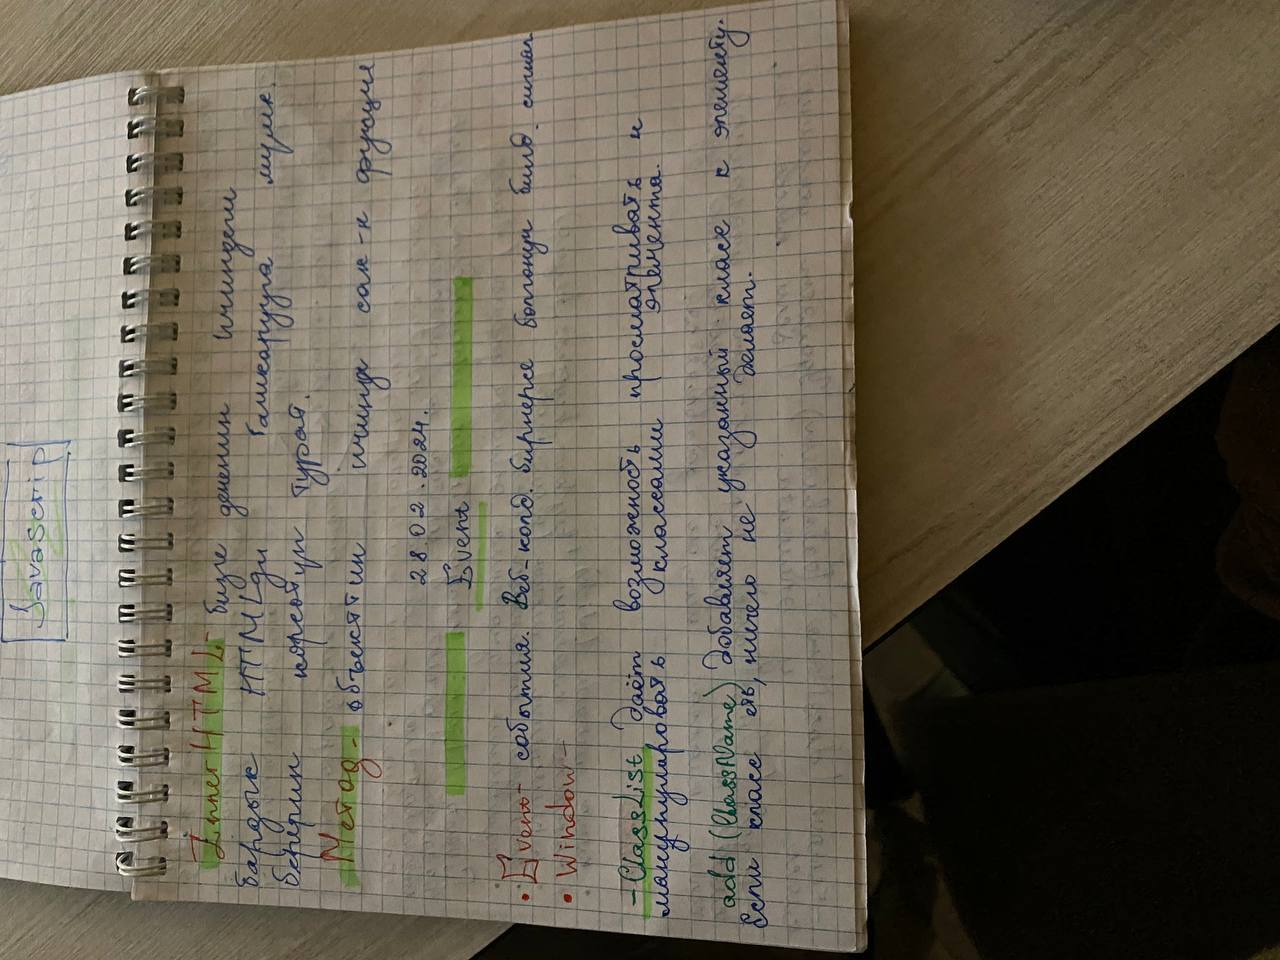 Javascrip
InnerHTML- бизге дененин ичиндеги
бардык HTMLди башкарууга мумк.
берерин корсотуп турат.
Метод- объекттин ичинде сак-н функция
28.02.2024.
Event
• Event- события. Веб-колд. бирнерсе болгонун билд. сигнал
• Window-
-ClassList даёт возможность просматривать и
манупуларовать классами элемента.
add (ClassName) добавляет указанный класс к элементу.
Если класс есть, ничего не делает.